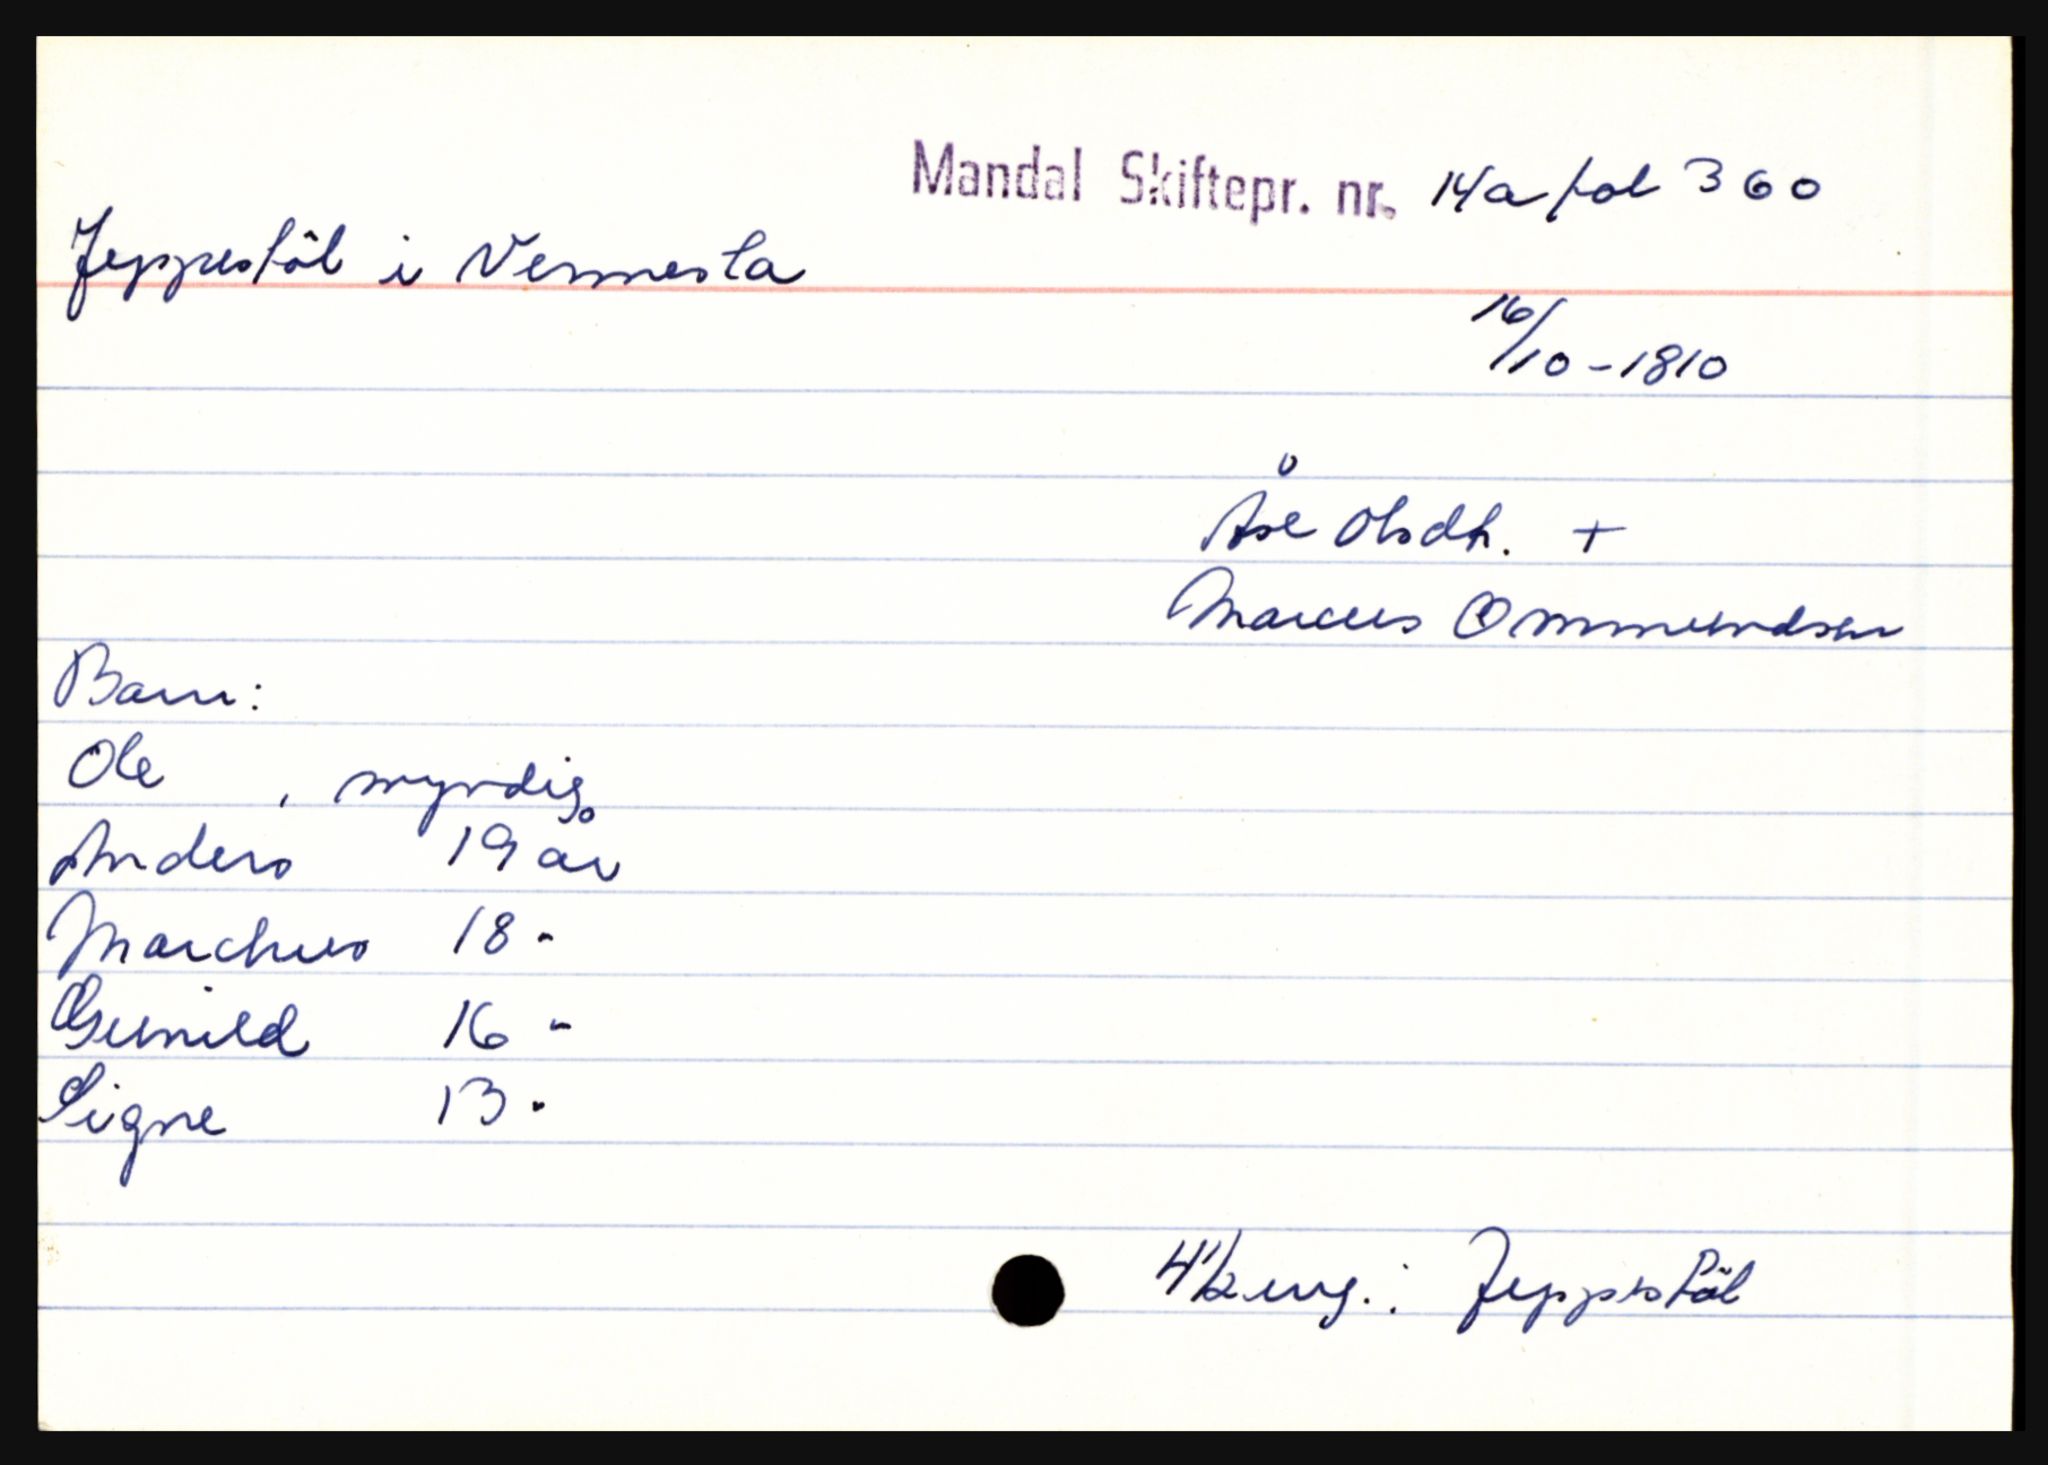 Mandal Skiftepr. nr. 14a fol 360
Jeppestöl i Vennesla
16/10-1810
Åse Olsdtr. +
Marcus Ommundsen
Barn:
Ole , myndig
Anders 19 år
Marchus 18 -
Gunild 16 -
Signe 13 -
4 1/2 eng. i Jeppestöl